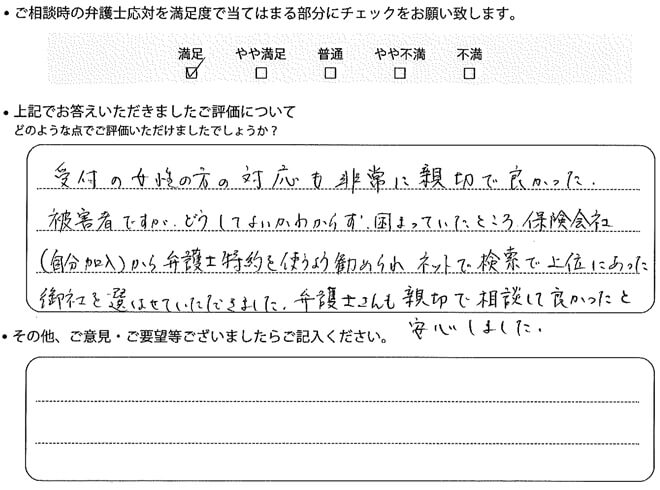 • ご相談時の弁護士応対を満足度で当てはまる部分にチェックをお願い致します。
満足 やや満足 普通 やや不満 不満
☑ ☐ ☐ ☐ ☐
• 上記でお答えいただきましたご評価について
どのような点でご評価いただけましたでしょうか？
受付の女性の方の対応も非常に親切で良かった.
被害者ですが、どうしてよいかわからず、困まっていたところ保険会社
(自分加入)から弁護士特約を使うよう勧められネットで検索で上位にあった
御社を選ばせていただきました. 弁護士さんも親切で相談して良かったと
安心しました.
• その他、ご意見・ご要望等ございましたらご記入ください。